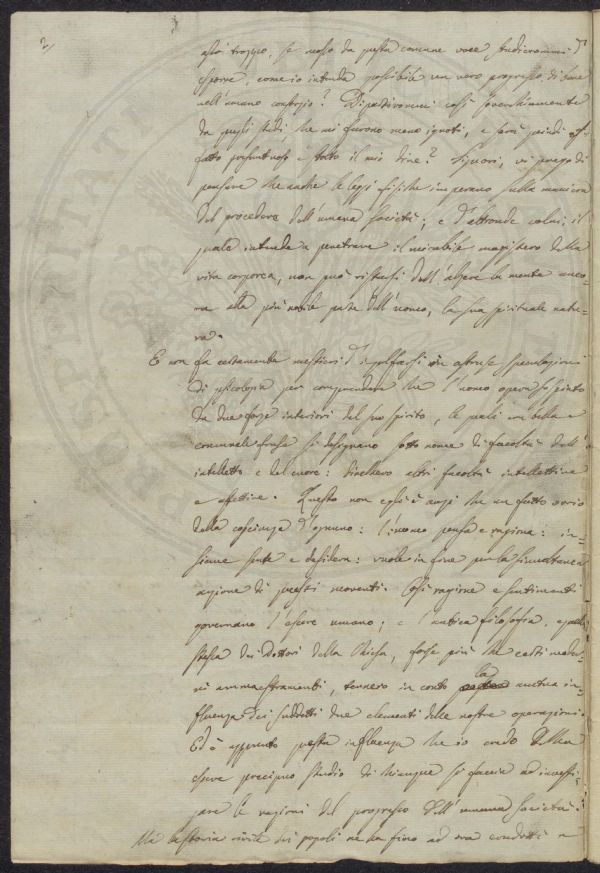 2/
troppo, se mosso da questa comune voce studierommi d'
esporre, come io intenda possibile un vero progresso di bene
nell'umano consorzio? Dipartirommi così soverchiamente
da quegli studi, che mi furono meno ignoti, e sarà quindi af-
fatto presuntuoso e stolto il mio dire? Signori, vi prego di
pensare che anche le leggi fisiche imperano sulla maniera
del procedere dell'umana società; e d'altronde colui, il
quale intende a penetrare il mirabile magistero della
vita corporea, non può ristarsi dall'alzare la mente anco-
ra alla più nobile parte dell'uomo, la sua spirituale natu-
ra.
E non fa certamente mestieri d'ingolfarsi in astruse speculazioni
di psicologia per comprendere che l'uomo opera sospinto
da due forze interiori del suo spirito, le quali con bella e
comunale frase si disegnano sotto nome di facoltà dell'
intelletto e del cuore: direbbero altri facoltà intellettive
e affettive. Questo non egli è anzi che un fatto ovvio
della coscienza d'ognuno: l'uomo pensa e ragiona: in-
sieme sente e desidera: vuole in fine per la simultanea
azione di questi moventi. Così ragione e sentimenti
governano l'essere umano; e l'antica filosofia, e quella
stessa dei Dottori della Chiesa, forse più che certi moder-
ni ammaestramenti, tennero in conto la mutua in-
fluenza dei suddetti due elementi delle nostre operazioni.
Ed è appunto questa influenza che io credo debba
essere precipuo studio di chiunque si faccia ad investi-
gare le ragioni del progresso dell'umana società.
Ma la storia civile dei popoli ne ha fino ad ora condotti a